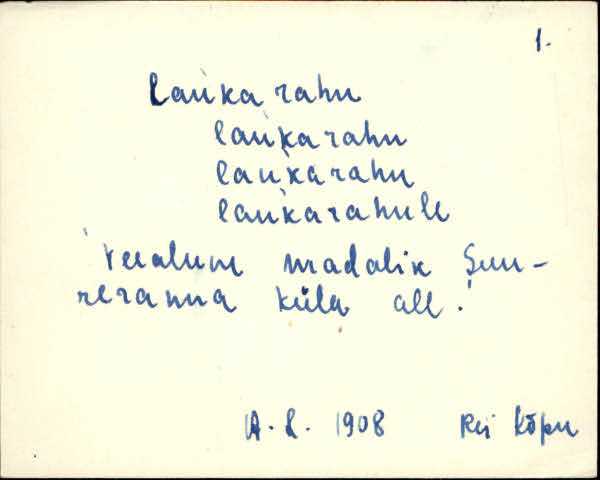 1.
laukarahu
lau'karahu
lau'karahu
lau'karahule
veealune madalik Suu-
reranna küla all.
A. L. 1908 Rei Kõpu